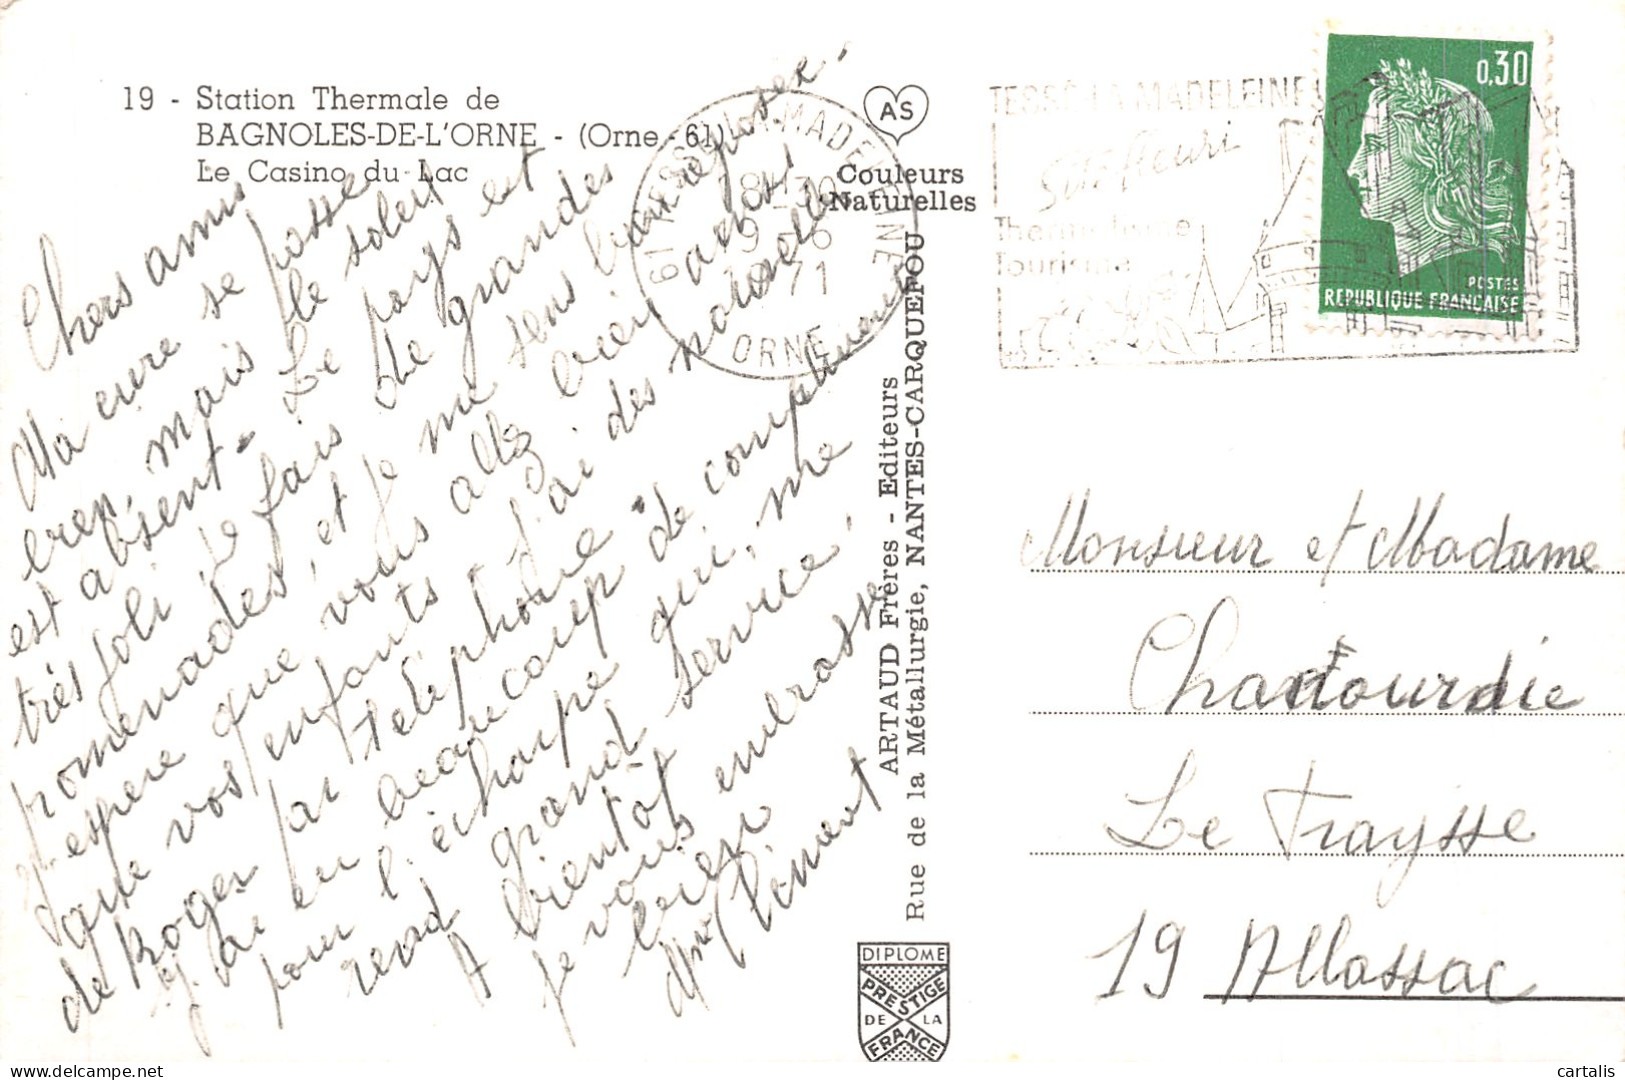 19 - Station Thermale de
BAGNOLES-DE-L'ORNE - (Orne - 61)
Le Casino du Lac
Chers amis
Ma cure se passe
bien, mais le soleil
est absent. Le pays est
très joli. Je fais de grandes
promenades, et je me sens bien reposée.
J'espère que vous allez bien ainsi
que vos enfants. J'ai des nouvelles
de Roger par téléphone.
J'ai eu beaucoup de compliments
pour l'écharpe qui me
rend grand service.
A bientôt
je vous embrasse
bien
AS
Couleurs
Naturelles
61 TESSÉ-LA-MADELEINE
18-30
9-6
71
ORNE
TESSÉ-LA MADELEINE
Site fleuri
Thermalisme
Tourisme
0,30
POSTES
REPUBLIQUE FRANÇAISE
ARTAUD Frères - Editeurs
Rue de la Métallurgie, NANTES-CARQUEFOU
DIPLOME
PRESTIGE
DE LA
FRANCE
Monsieur et Madame
Chadourdie
Le Traysse
19 Allassac
cartalis